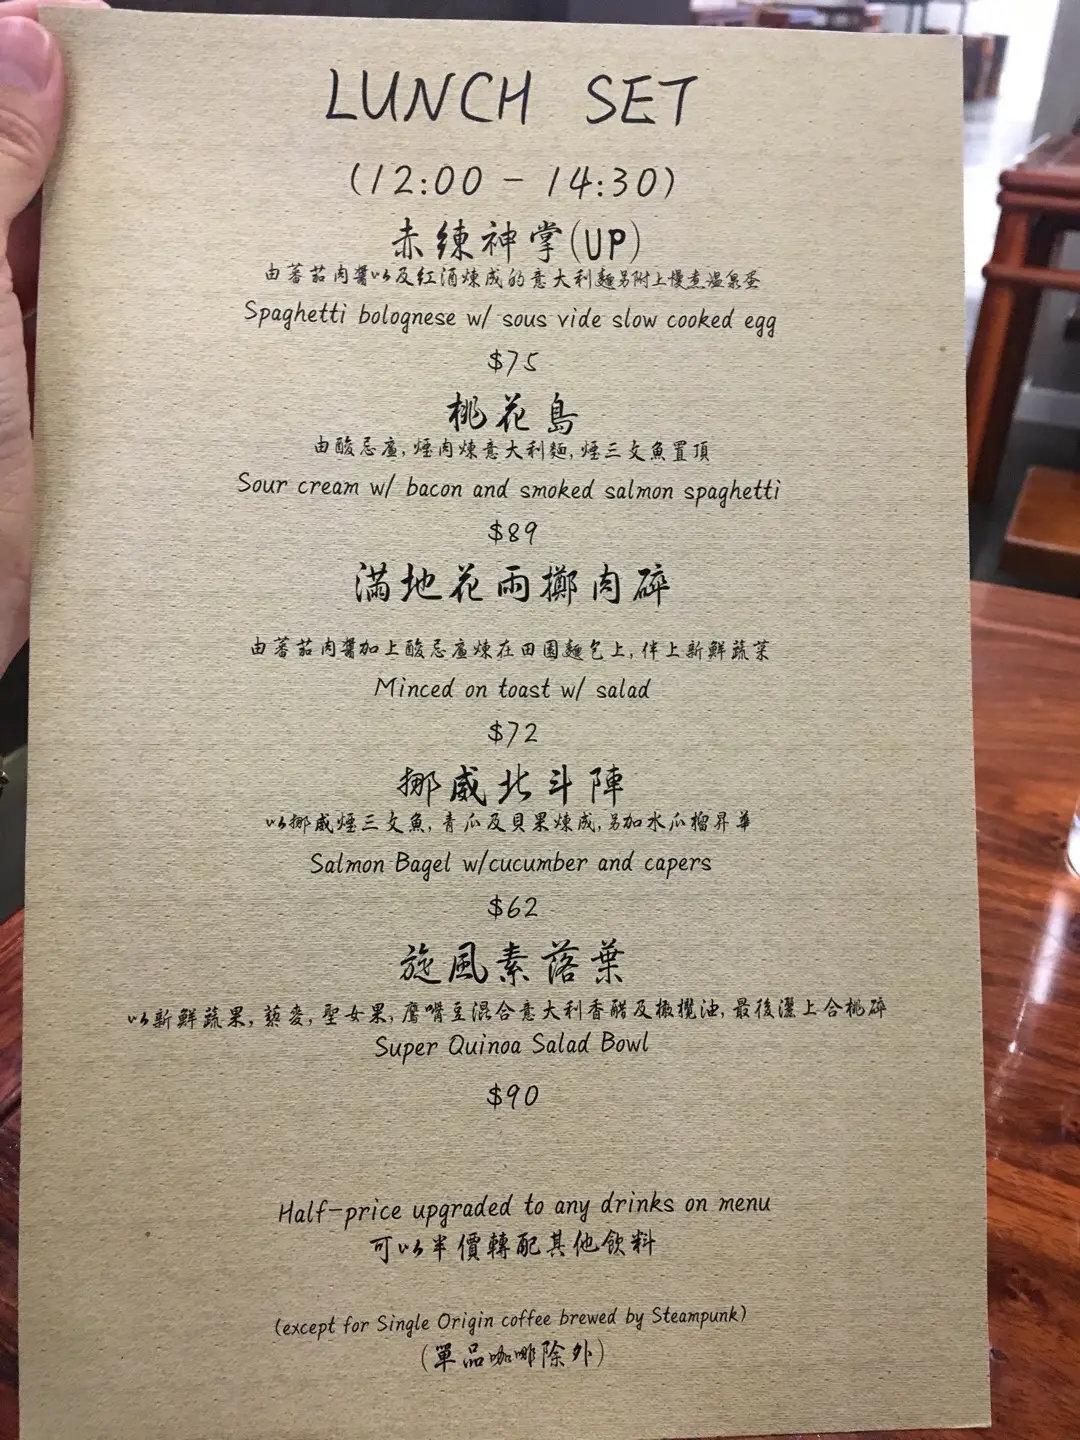 LUNCH SET
(12:00 - 14:30)
赤練神掌(UP)
由蕃茄肉醬以及紅酒煉成的意大利麵另附上慢煮溫泉蛋
Spaghetti bolognese w/ sous vide slow cooked egg
$75
桃花島
由酸忌廉,煙肉煉意大利麵,煙三文魚置頂
Sour cream w/ bacon and smoked salmon spaghetti
$89
滿地花雨擲肉碎
由蕃茄肉醬加上酸忌廉煉在田園麵包上,伴上新鮮蔬菜
Minced on toast w/ salad
$72
挪威北斗陣
以挪威煙三文魚,青瓜及貝果煉成,另加水瓜榴昇華
Salmon Bagel w/cucumber and capers
$62
旋風素落葉
以新鮮蔬果,藜麥,聖女果,鷹嘴豆混合意大利香醋及橄欖油,最後灑上合桃碎
Super Quinoa Salad Bowl
$90
Half-price upgraded to any drinks on menu
可以半價轉配其他飲料
(except for Single Origin coffee brewed by Steampunk)
(單品咖啡除外)